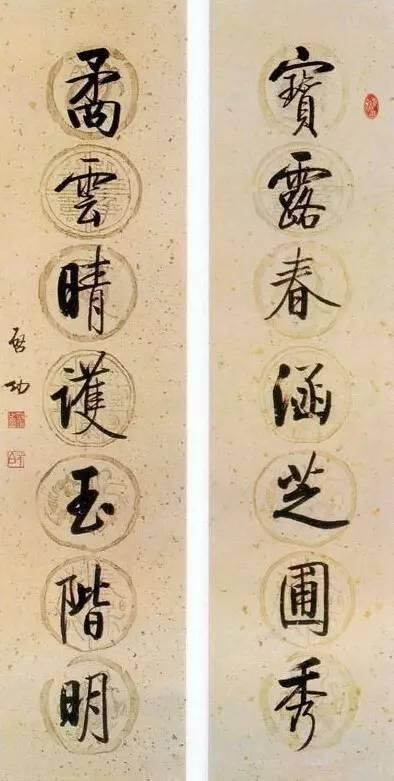 寶露春涵芝圃秀
矞雲晴護玉階明
啟功